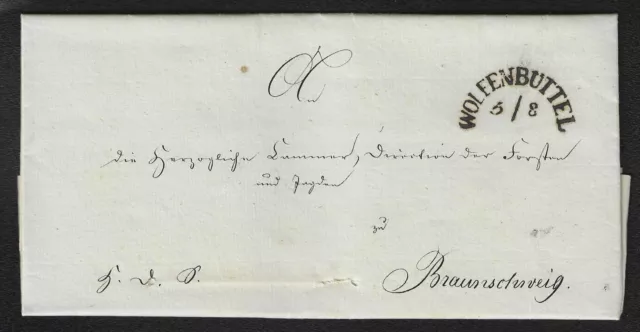 An
WOLFENBUTTEL
5/8
die Herzogliche Cammer, Direction der Forsten
und Jagden
zu
H. d. S.
Braunschweig.